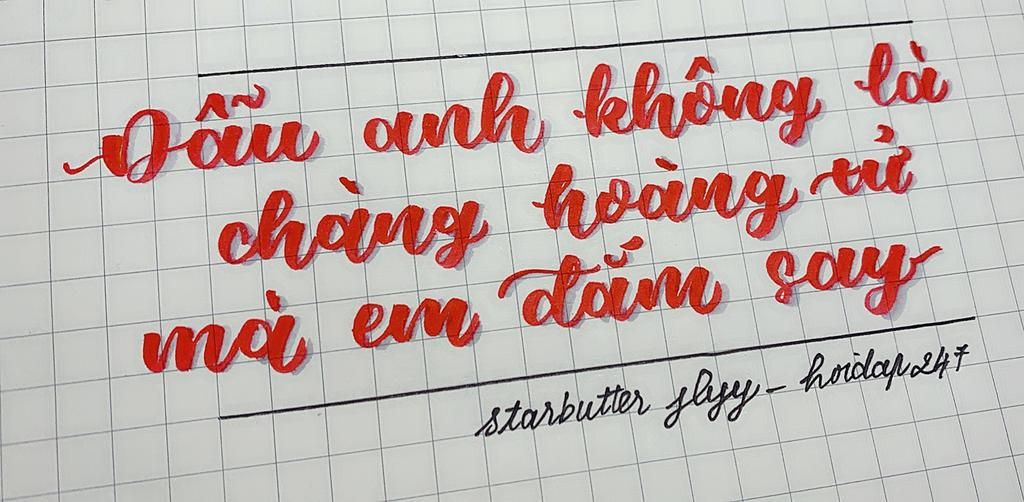 Dẫu anh không là
chàng hoàng tử
mà em đắm say
starbutter - hoidap247